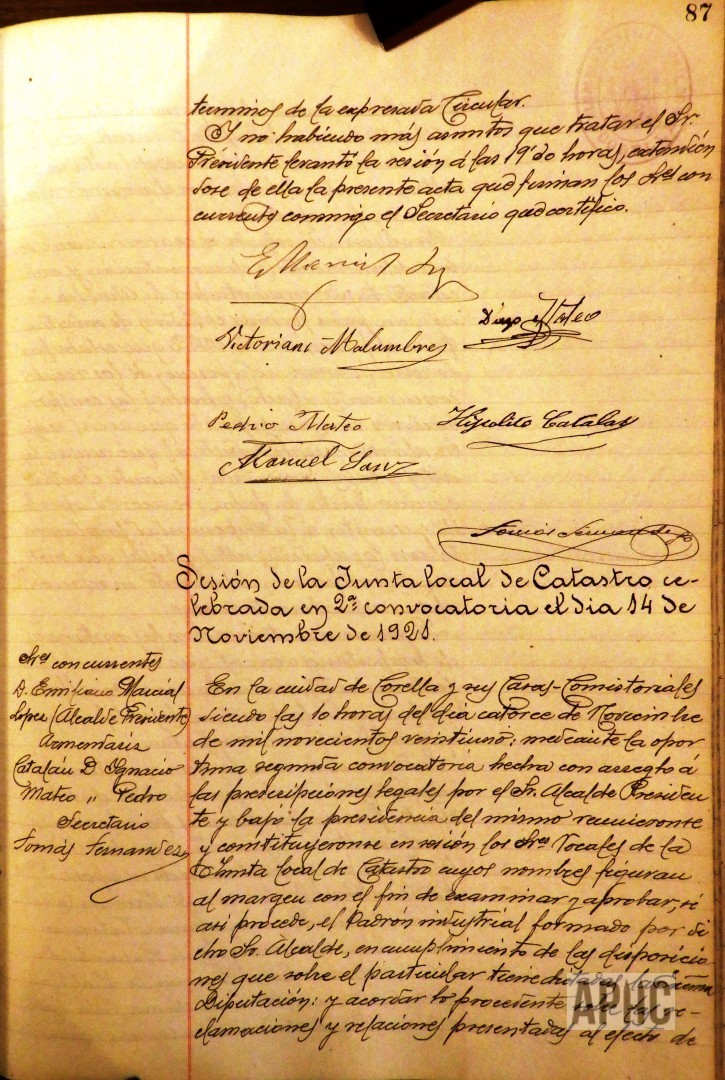 87
terminos de la expresada Circular.
Y no habiendo más asuntos que tratar el Sr.
Presidente levantó la sesión á las 19'30 horas, extendién
dose de ella la presente acta que firman los Sres con
currentes conmigo el Secretario que certifico.
Victoriano Malumbres
Diego Mateo
Pedro Mateo
Hipolito Catalan
Manuel Sanz
Tomás Fernandez
Sesión de la Junta local de Catastro ce-
lebrada en 2ª convocatoria el dia 14 de
Noviembre de 1921.
Sres concurrentes
D. Emiliano Marcial
Lopez (Alcalde Presidente)
Armendaris
Catalán D Ignacio
Mateo " Pedro
Secretario
Tomás Fernandez
En la ciudad de Corella y sus Casas-Consistoriales
siendo las 10 horas del dia catorce de Noviembre
de mil novecientos veintiuno: mediante la opor
tuna segunda convocatoria hecha con arreglo á
las prescripciones legales por el Sr. Alcalde Presiden
te y bajo la presidencia del mismo reunieronse
y constituyeronse en sesión los Sres Vocales de la
Junta local de Catastro cuyos nombres figuran
al margen con el fin de examinar y aprobar, si
asi procede, el Padrón industrial formado por di
cho Sr. Alcalde, en cumplimiento de las disposicio
nes que sobre el particular tiene dictadas la Excma
Diputación: y acordar lo procedente sobre las re-
clamaciones y relaciones presentadas al efecto de
APHC